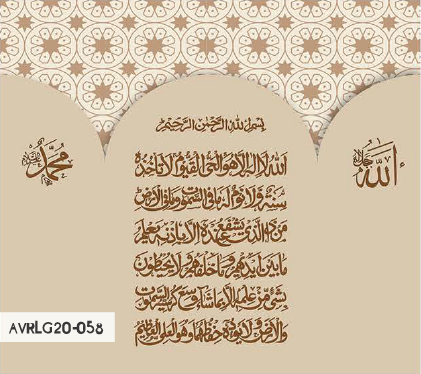 بسم الله الرحمن الرحيم
الله جل جلاله
محمد
الله لا إله إلا هو الحي القيوم لا تأخذه
سنة ولا نوم له ما في السموات وما في الأرض
من ذا الذي يشفع عنده إلا بإذنه يعلم
ما بين أيديهم وما خلفهم ولا يحيطون
بشيء من علمه إلا بما شاء وسع كرسيه السموات
والأرض ولا يؤده حفظهما وهو العلي العظيم
AVRLG20-058